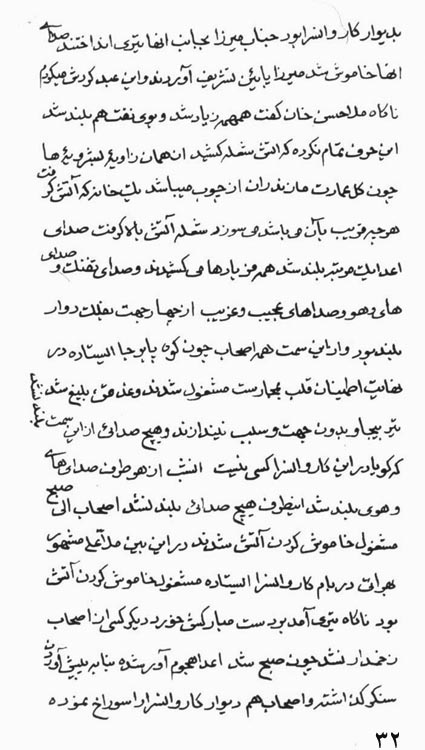 بدیوار کاروانسرا بود جناب میرزا بجانب آنها تیری انداختند صدای
آنها خاموش شد میرزا پایین تشریف آوردند و این عبد کردش میکردم
ناکاه ملا حسن خان کفت همهمه زیاد شد و بوی نفت هم بلند شد
این حرف تمام نکرده که آتش شعله کشید از همان زاویهٔ
چون کل عمارت مازندران از چوب میباشد یک خانه که آتش کرفت
هر چه قریب بآن می باشد می سوزد شعله آتش بالا کرفت صدای
اعدا یک مرتبه بلند شد همه فریادها می کشیدند و صدای تفنک و صدای
های و هو و صداهای عجیب و غریب از چهار جهت بفلک دوار
بلند بود و از این سمت همه اصحاب چون کوه پا بر جا ایستاده در
نهایت اطمینان قلب بمحارست مشغول شدند و غدقن بلیغ شد
تیر بیجا و بدون جهت و سبب نیندازند و هیچ صدائی از این سمت بلند نشد
که کویا در این کاروانسرا کسی نیست آنشب از هر طرف صداهای های
و هوی بلند شد اینطرف هیچ صدائی بلند نشد اصحاب الی صبح
مشغول خاموش کردن آتش شدند در این بین ملا آقا مشهور
بهراتی در بام کاروانسرا ایستاده مشغول خاموش کردن آتش
بود ناکاه تیری آمد بدست مبارکش خورد دیکر کسی از اصحاب
زخمدار نشد چون صبح شد اعدا هجوم آور شده بنابر پیش آوردن
سنکر کذاشتند و اصحاب هم دیوار کاروانسرا را سوراخ نموده
۳۲